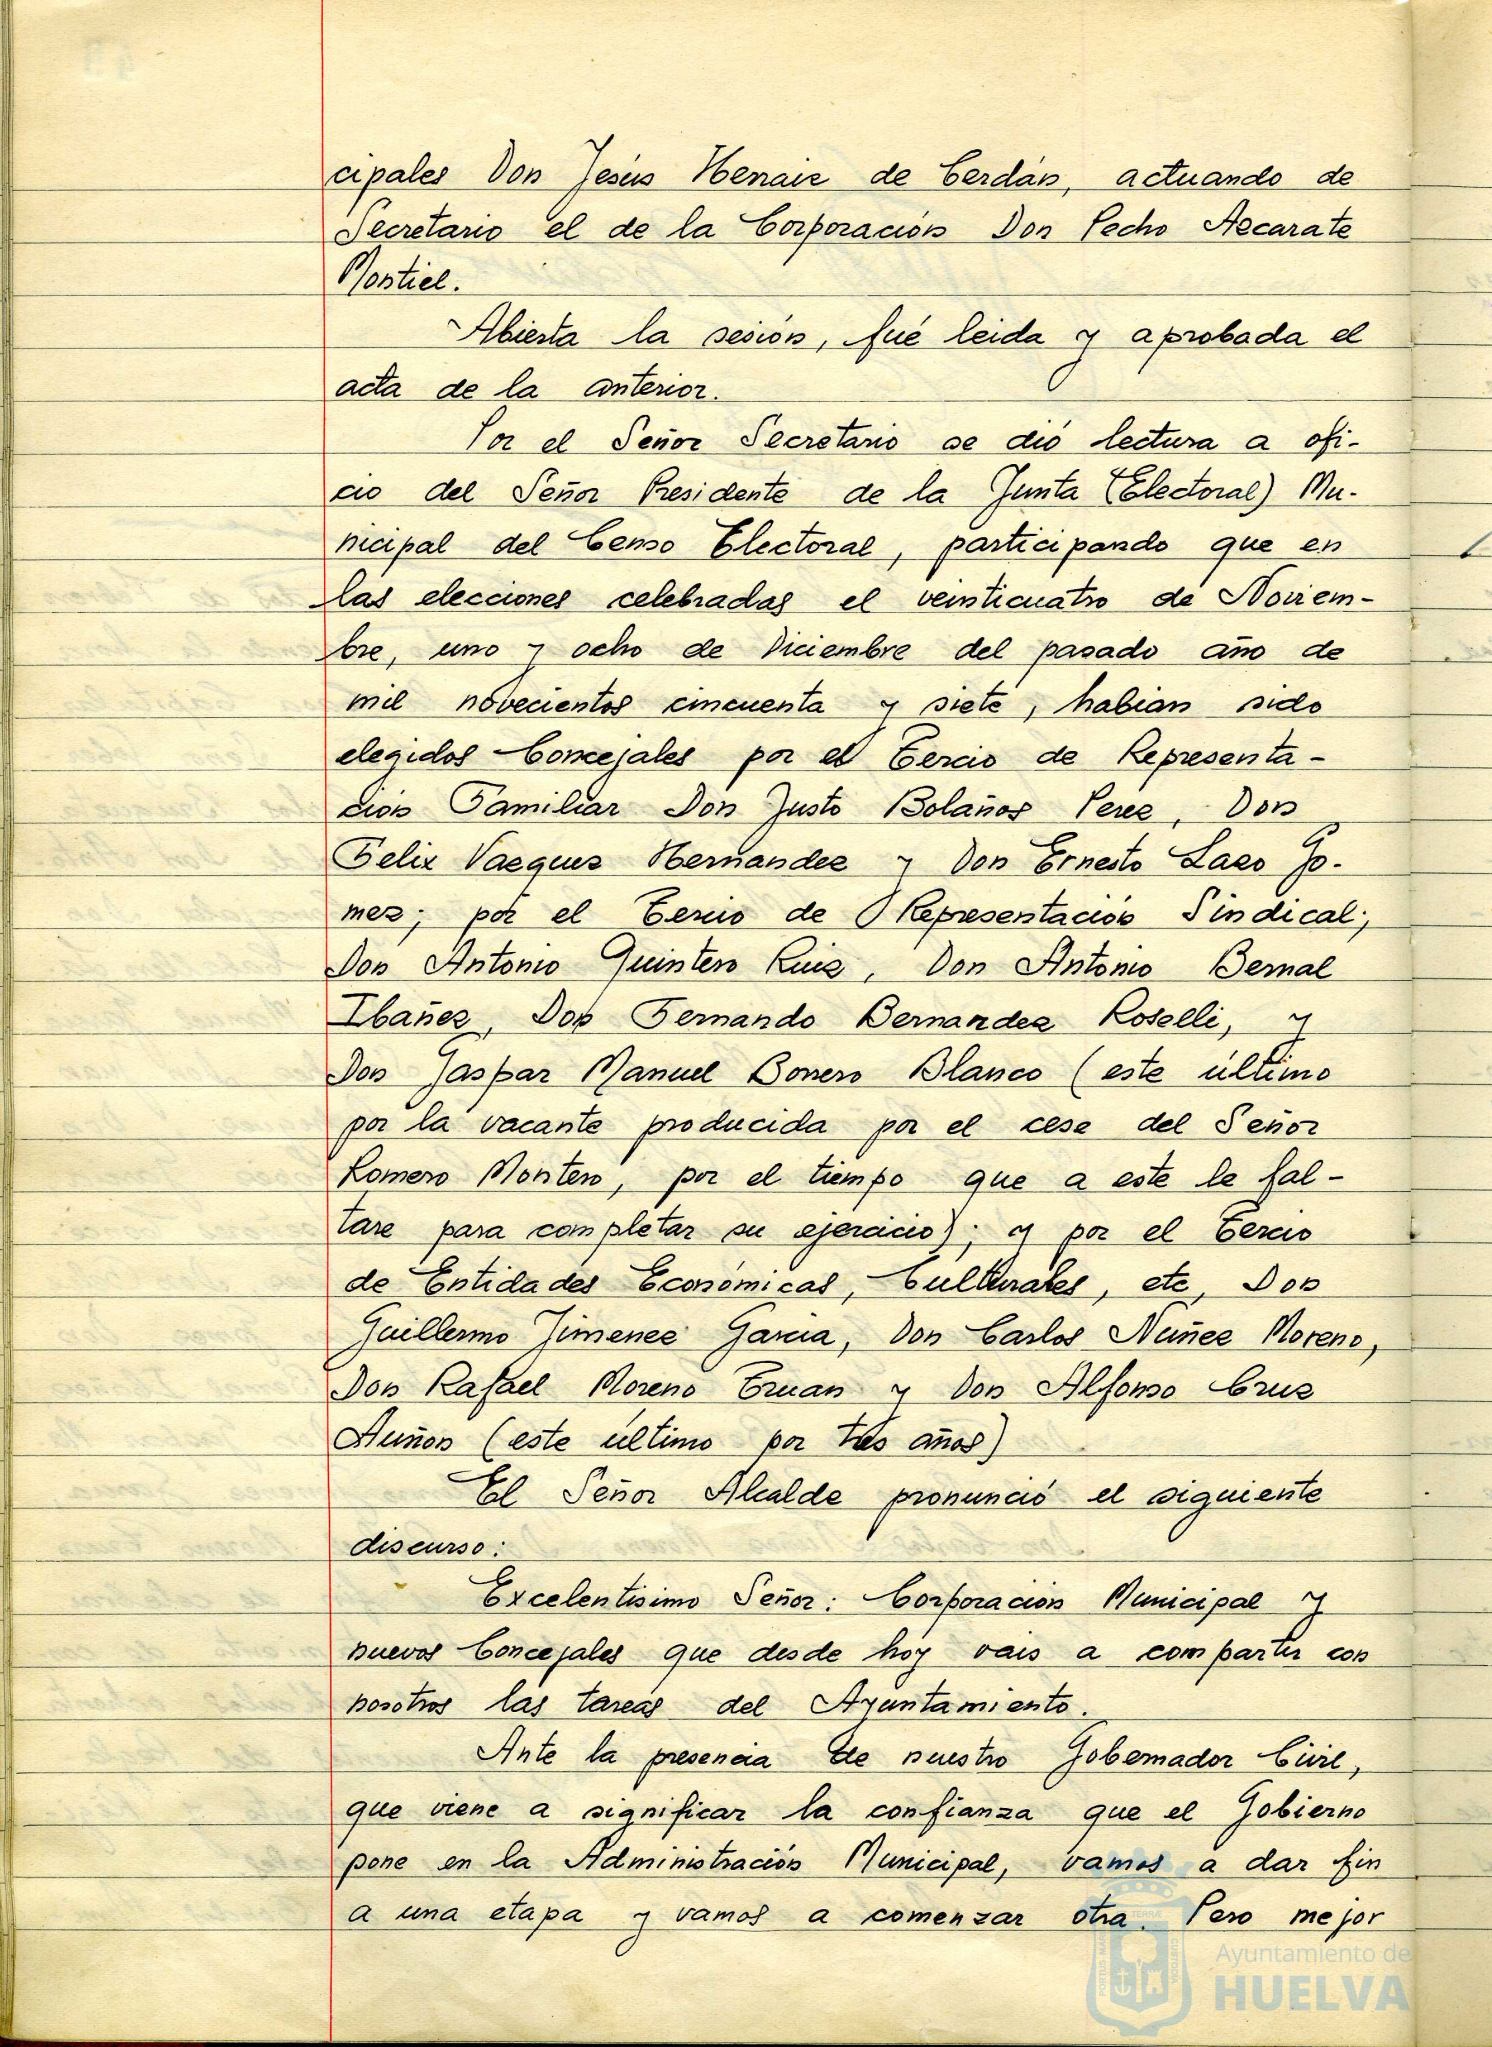 cipales Don Jesús Henaiz de Cerdán, actuando de
Secretario el de la Corporación Don Pecho Azcarate
Montiel.
Abierta la sesión, fué leida y aprobada el
acta de la anterior.
Por el Señor Secretario se dió lectura a ofi-
cio del Señor Presidente de la Junta (Electoral) Mu-
nicipal del Censo Electoral, participando que en
las elecciones celebradas el veinticuatro de Noviem-
bre, uno y ocho de Diciembre del pasado año de
mil novecientos cincuenta y siete, habian sido
elegidos Concejales por el Tercio de Representa-
ción Familiar Don Justo Bolaños Perez, Don
Felix Vazquez Hernandez y Don Ernesto Lazo Go-
mez; por el Tercio de Representación Sindical;
Don Antonio Quintero Ruiz, Don Antonio Bernal
Ibañez, Don Fernando Bernandez Roselli, y
Don Gaspar Manuel Borrero Blanco (este último
por la vacante producida por el cese del Señor
Romero Montero, por el tiempo que a este le fal-
tare para completar su ejercicio); y por el Tercio
de Entidades Económicas, Culturales, etc, Don
Guillermo Jimenez Garcia, Don Carlos Nuñez Moreno,
Don Rafael Moreno Eruan y Don Alfonso Cruz
Auñon (este último por tres años)
El Señor Alcalde pronunció el siguiente
discurso:
Excelentisimo Señor: Corporación Municipal y
nuevos Concejales que desde hoy vais a compartir con
nosotros las tareas del Ayuntamiento.
Ante la presencia de nuestro Gobernador Civil,
que viene a significar la confianza que el Gobierno
pone en la Administración Municipal, vamos a dar fin
a una etapa y vamos a comenzar otra. Pero mejor
Ayuntamiento de
HUELVA